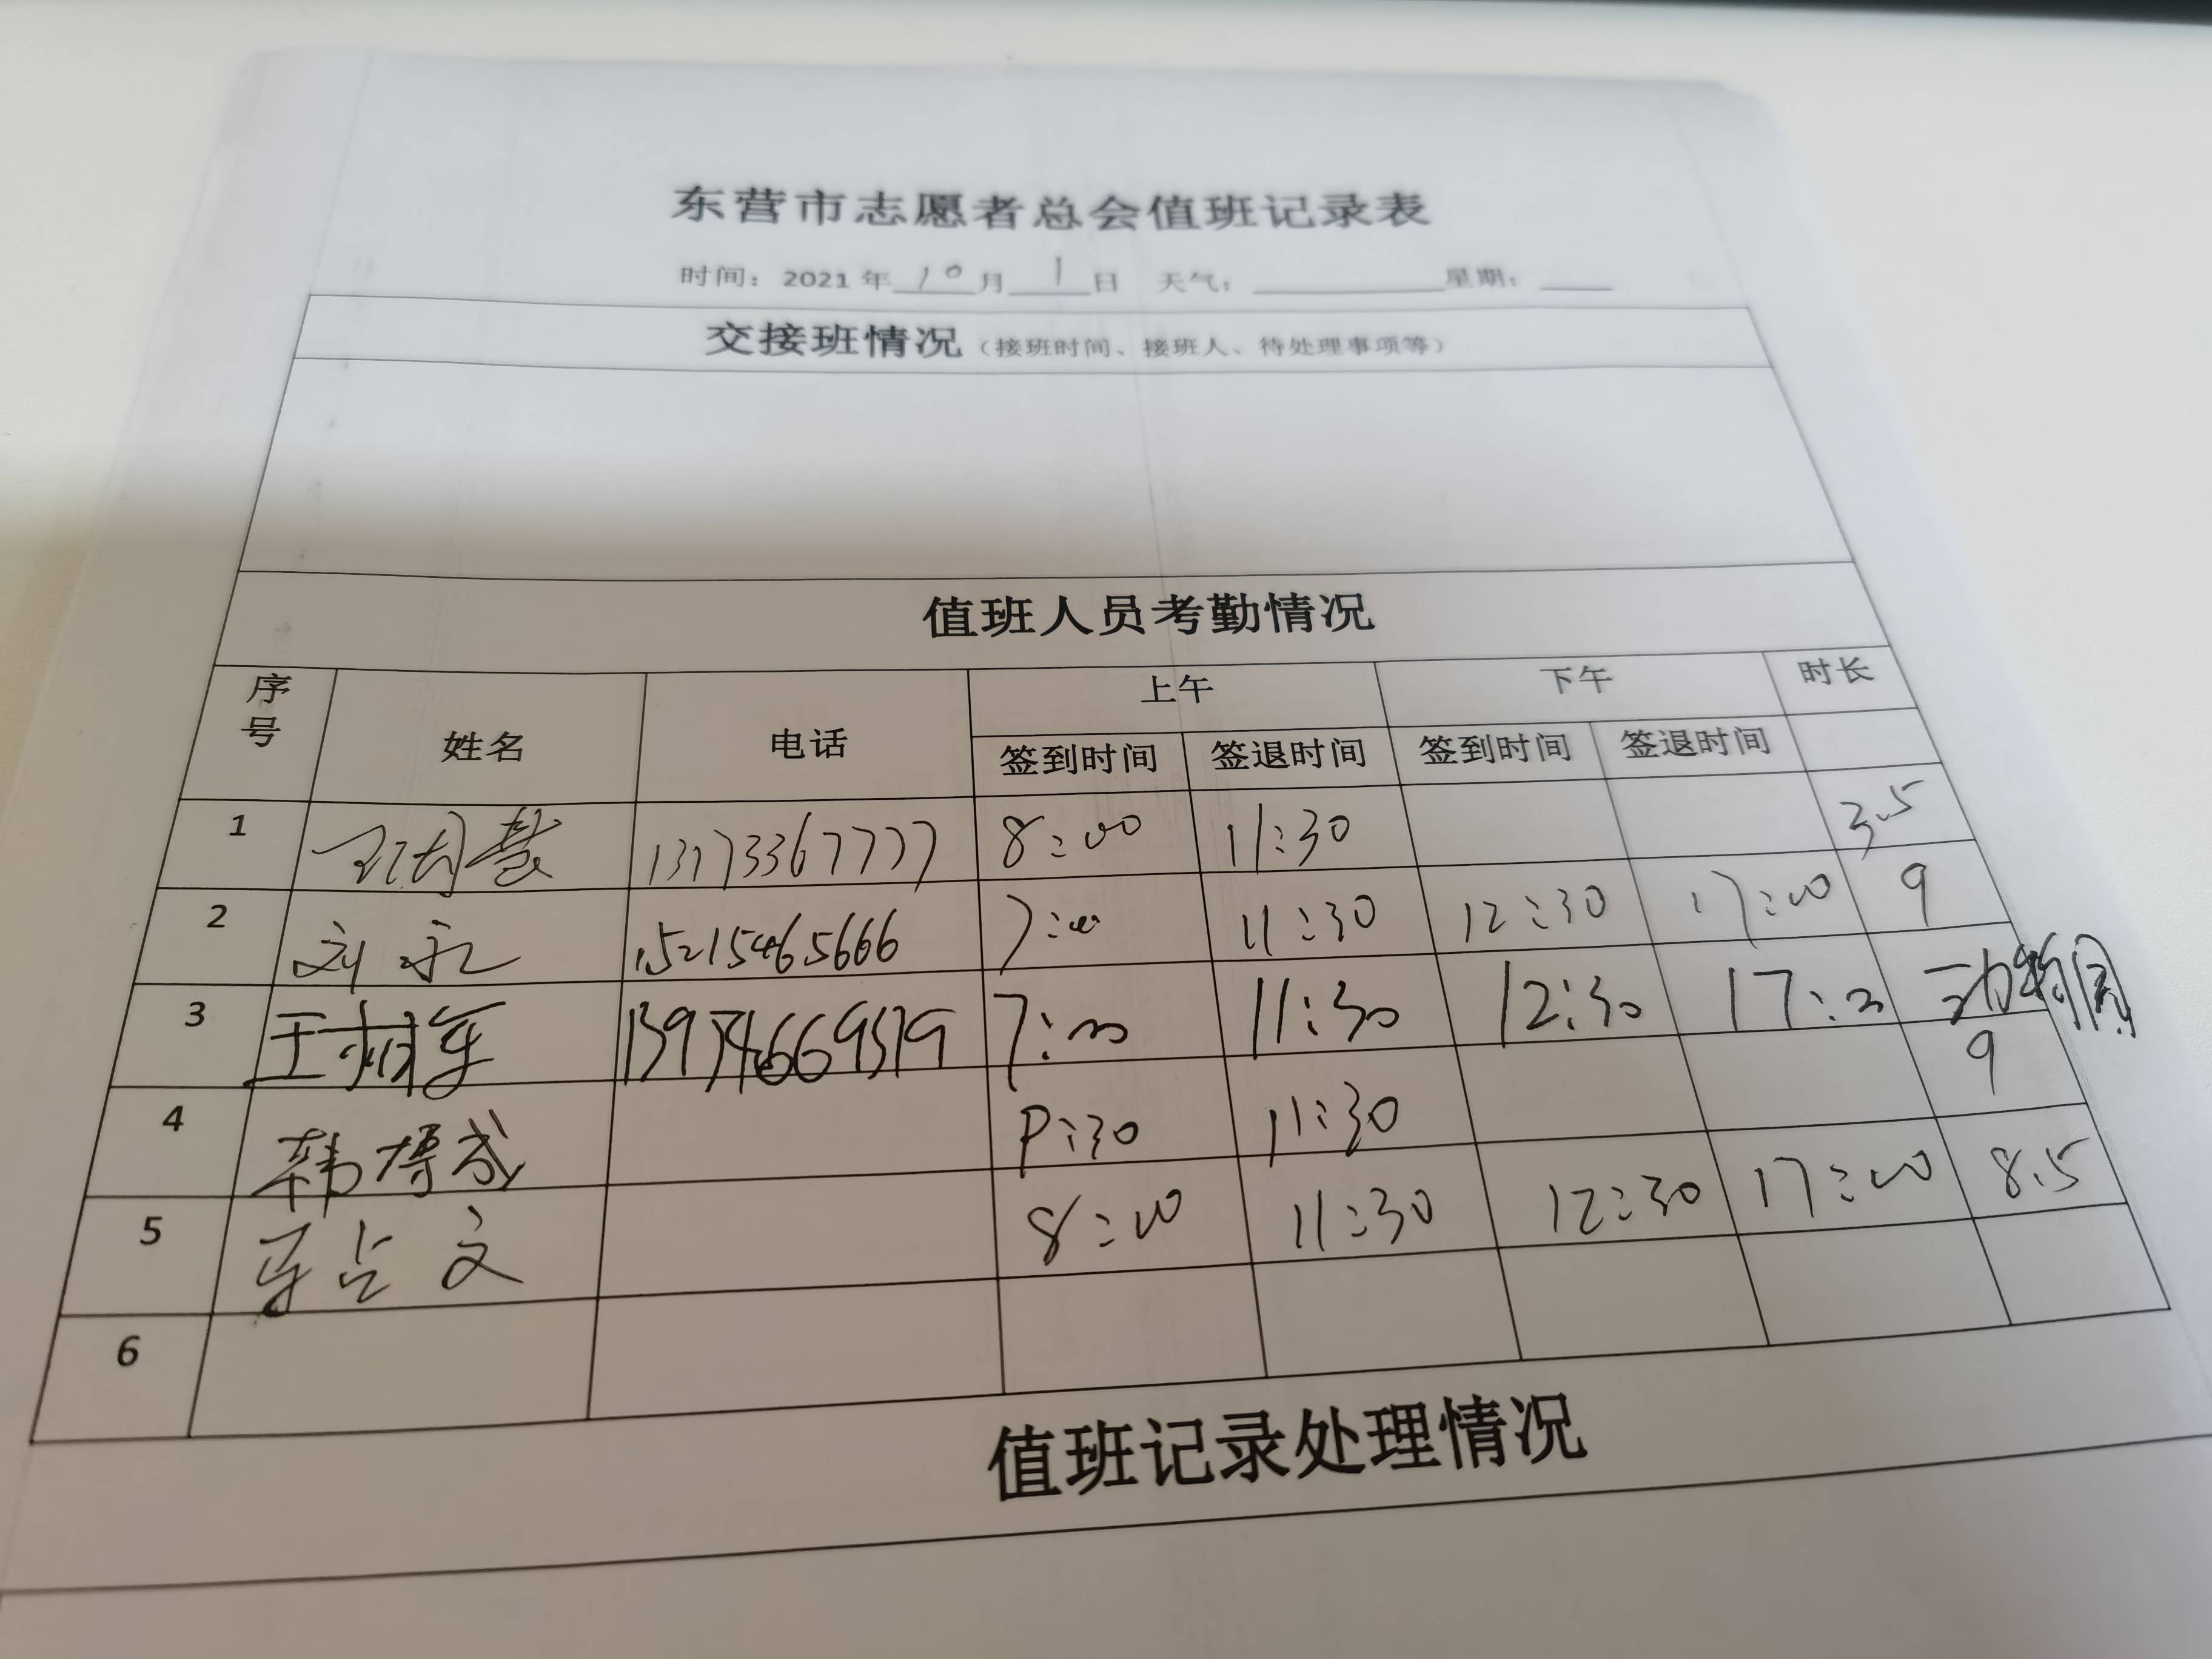 东营市志愿者总会值班记录表
时间：2021年 10 月 1 日 天气： 星期：
交接班情况（接班时间、接班人、待处理事项等）
值班人员考勤情况
序号 姓名 电话 上午 下午 时长
签到时间 签退时间 签到时间 签退时间
1 13173367777 8:00 11:30 3.5
2 刘永 15215465666 7:00 11:30 12:30 17:00 9
3 王树军 7:00 11:30 12:30 17:00 动物园 9
4 韩博成 11:30
5 占文 8:00 11:30 12:30 17:00 8.5
6
值班记录处理情况